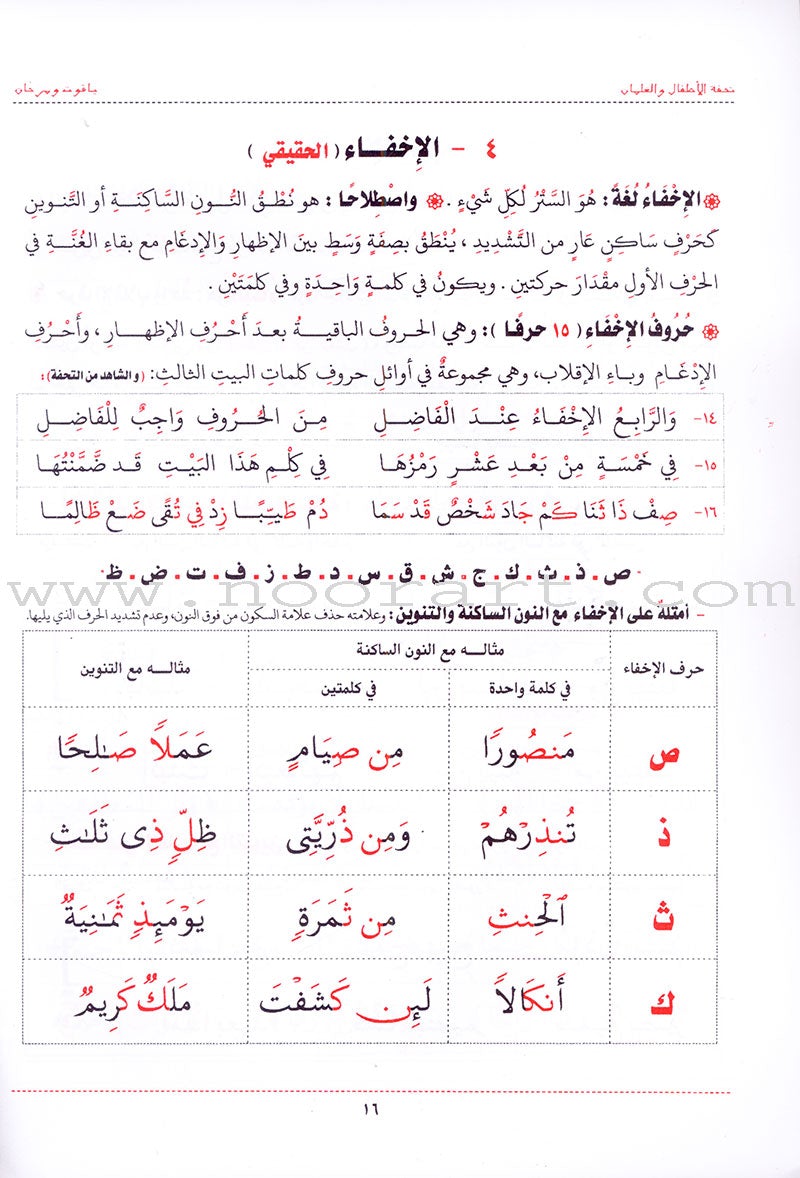 تحفة الأطفال والغلمان
ياقوت ومرجان
٤ - الإِخْفَـــاء ( الحقيقي )
الإِخْفَاءُ لُغَةً : هُوَ السَّتْرُ لكِلِّ شَيْءٍ . واصْطِلاحًا : هو نُطْـقُ النُّـون السَّـاكِنَـة أو التَّنوين
كَحَرْفٍ سَاكِنٍ عَارٍ من التَّشْديدِ ، يُنْطَقُ بصِفَةٍ وَسَطٍ بينَ الإظهارِ والإدغَامِ مع بقاءِ الغُنَّـةِ في
الحَرْفِ الأولِ مقْدَارَ حركتينِ . ويكونُ في كلمةٍ وَاحِدَةٍ وفي كلمَتَيْنِ .
حُرُوفُ الإِخْفَاءِ ( ١٥ حرفًا ) : وهي الحروفُ الباقيـةُ بعدَ أَحْرُفِ الإظهـارِ ، وأَحْرُفِ
الإِدْغَـامِ وباءِ الإقلاب، وهي مجموعةٌ في أوائلِ حروفِ كلماتِ البيتِ الثالثِ: (والشاهد من التحفة):
١٤- وَالرَّابِعُ الإِخْفَاءُ عِنْدَ الْفَاضِلِ مِنَ الحُرُوفِ وَاجِبٌ لِلْفَاضِلِ
١٥- فِي خَمْسَةٍ مِنْ بَعْدِ عَشْرٍ رَمْزُهَا فِي كِلْمِ هَذَا البَيْتِ قَد ضَمَّنْتُهَا
١٦- صِفْ ذَا ثَنَا كَمْ جَادَ شَخْصٌ قَدْ سَمَا دُمْ طَيِّبًا زِدْ فِي تُقًى ضَعْ ظَالِمًا
ص . ذ . ث . ك . ج . ش . ق . س . د . ط . ز . ف . ت . ض . ظ
www.noorart.com
- أمثلةٌ على الإخفاء مع النون الساكنة والتنوين : وعلامته حذف علامة السكون من فوق النون، وعدم تشديد الحرف الذي يليها.
حرف الإخفاء
مثالـه مع النون الساكنة
مثالـه مع التنوين
في كلمة واحدة
في كلمتين
ص مَنصُورًا مِن صِيَامٍ عَمَلاً صَـٰلِحًا
ذ تُنذِرْهُمْ وَمِن ذُرِّيَّتِى ظِلٍّ ذِى ثَلَـٰثِ
ث ٱلْحِنثِ مِن ثَمَرَةٍ يَوْمَئِذٍ ثَمَـٰنِيَةٌ
ك أَنكَالاً لَئِن كَشَفْتَ مَلَكٌ كَرِيمٌ
١٦